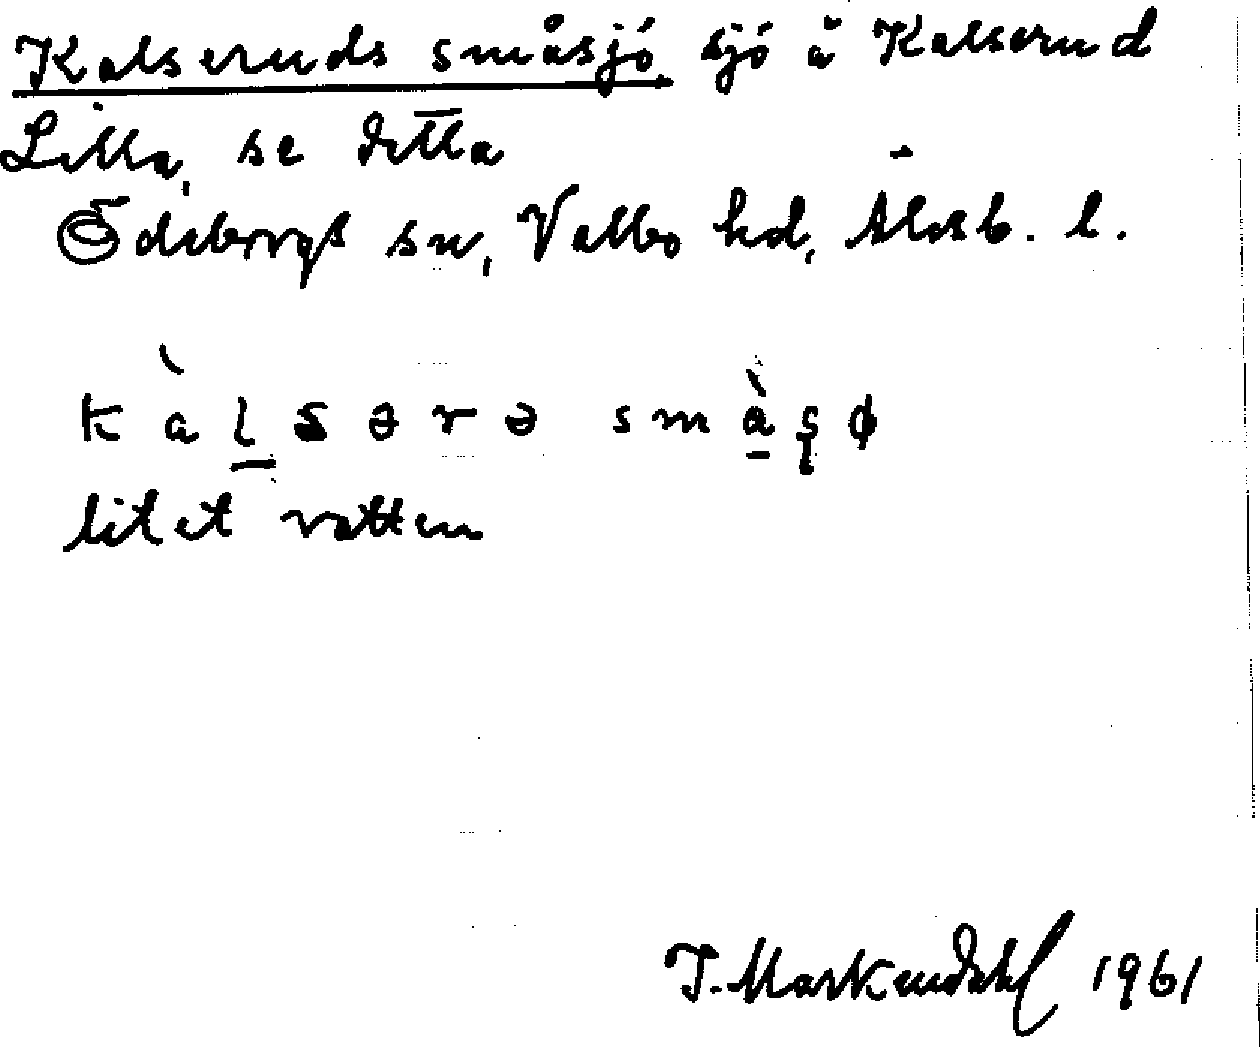 Kalseruds småsjö, sjö å Kalserud
Lilla, se detta
Ödeborgs sn, Valbo hd, Älvsb. l.
k à l s ə r ə s m å̀ ʂ ø
litet vatten
J. Markendahl 1961